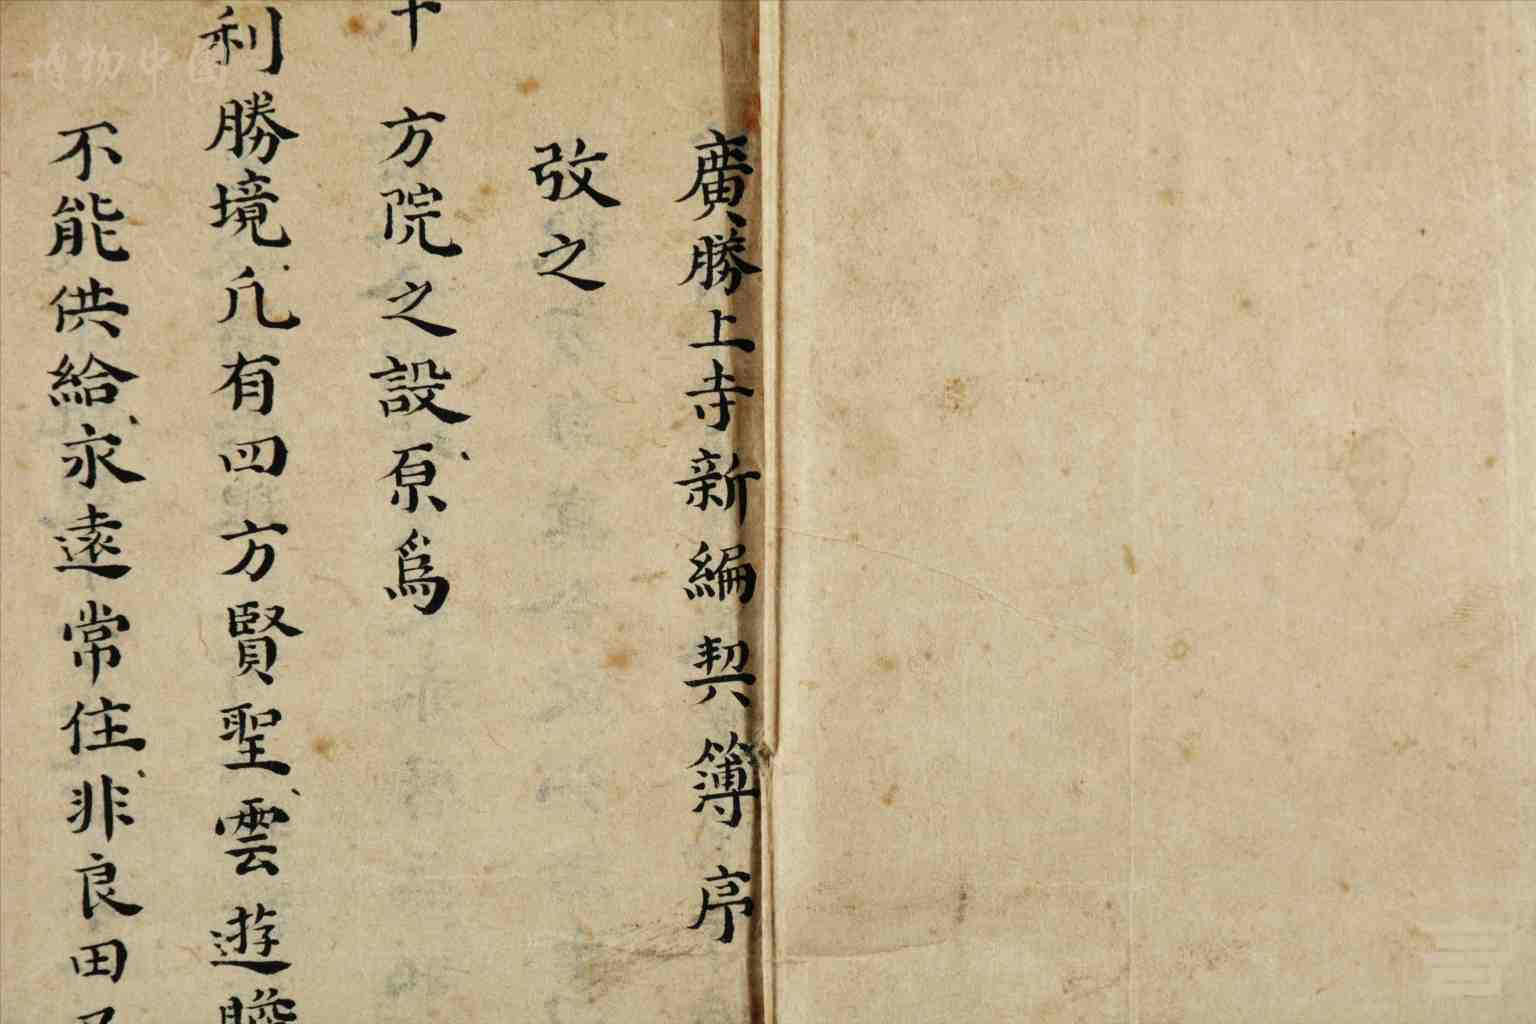 廣勝上寺新編契簿序
攷之
十方院之設原爲
利勝境凢有四方賢聖雲遊瞻
不能供給永遠常住非良田
博物中国